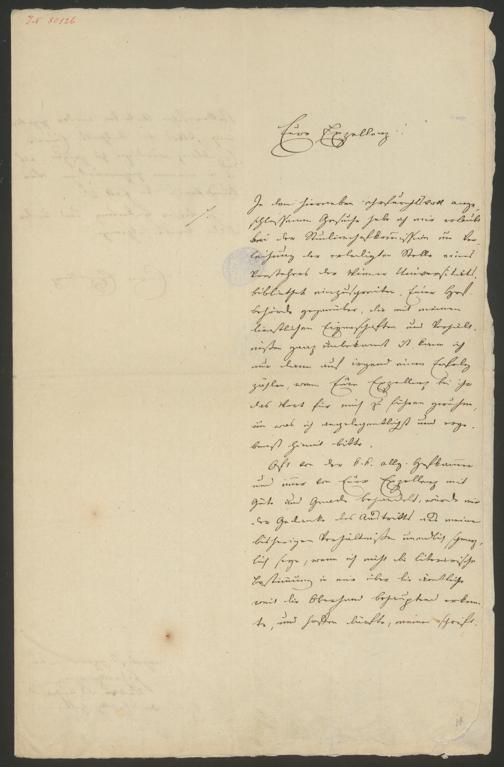 I.N. 80126
Eure Exzellenz!
In dem hierneben ehrfurchtsvoll ange-
schlossenen Gesuche habe ich mir erlaubt
bei der Studienhofkommission um Ver-
leihung der erledigten Stelle eines
Vorstehers der Wiener Universitäts
bibliothek einzuschreiten. Einer Hof-
behörde gegenüber, die mit meinen
dienstlichen Eigenschaften und Verhält-
nissen ganz unbekannt ist kann ich
nur dann auf irgend einen Erfolg
zählen, wenn Eure Exzellenz bei ihr
das Wort für mich zu führen geruhen,
um was ich angelegentlichst und erge-
benst hiemit bitte.
Oft von der k.k. allg. Hofkammer
und immer von Eure Exzellenz mit
Güte und Gnade behandelt, würde mir
der Gedanke des Austritts aus meinen
bisherigen Verhältnissen unendlich schmerz-
lich seyn, wenn ich nicht die literarische
Bestimmung in mir über die ämtliche
weit die Oberhand behaupten erkenn-
te, und hoffen dürfte, meiner schrift-